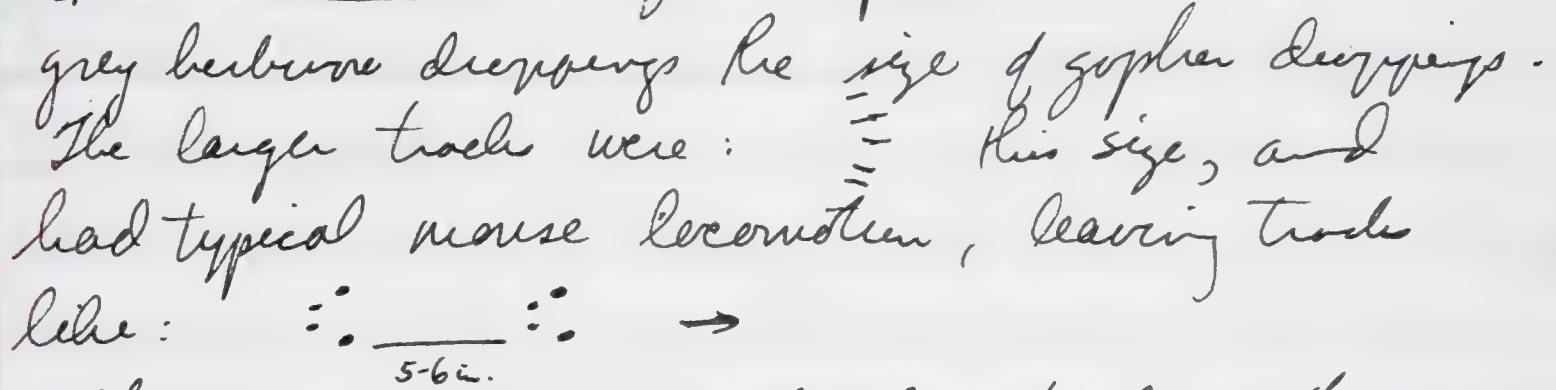 grey herbivore droppings the size of gopher droppings.
The larger tracks were: this size, and
had typical mouse locomotion, leaving tracks
like: →
5-6 in.